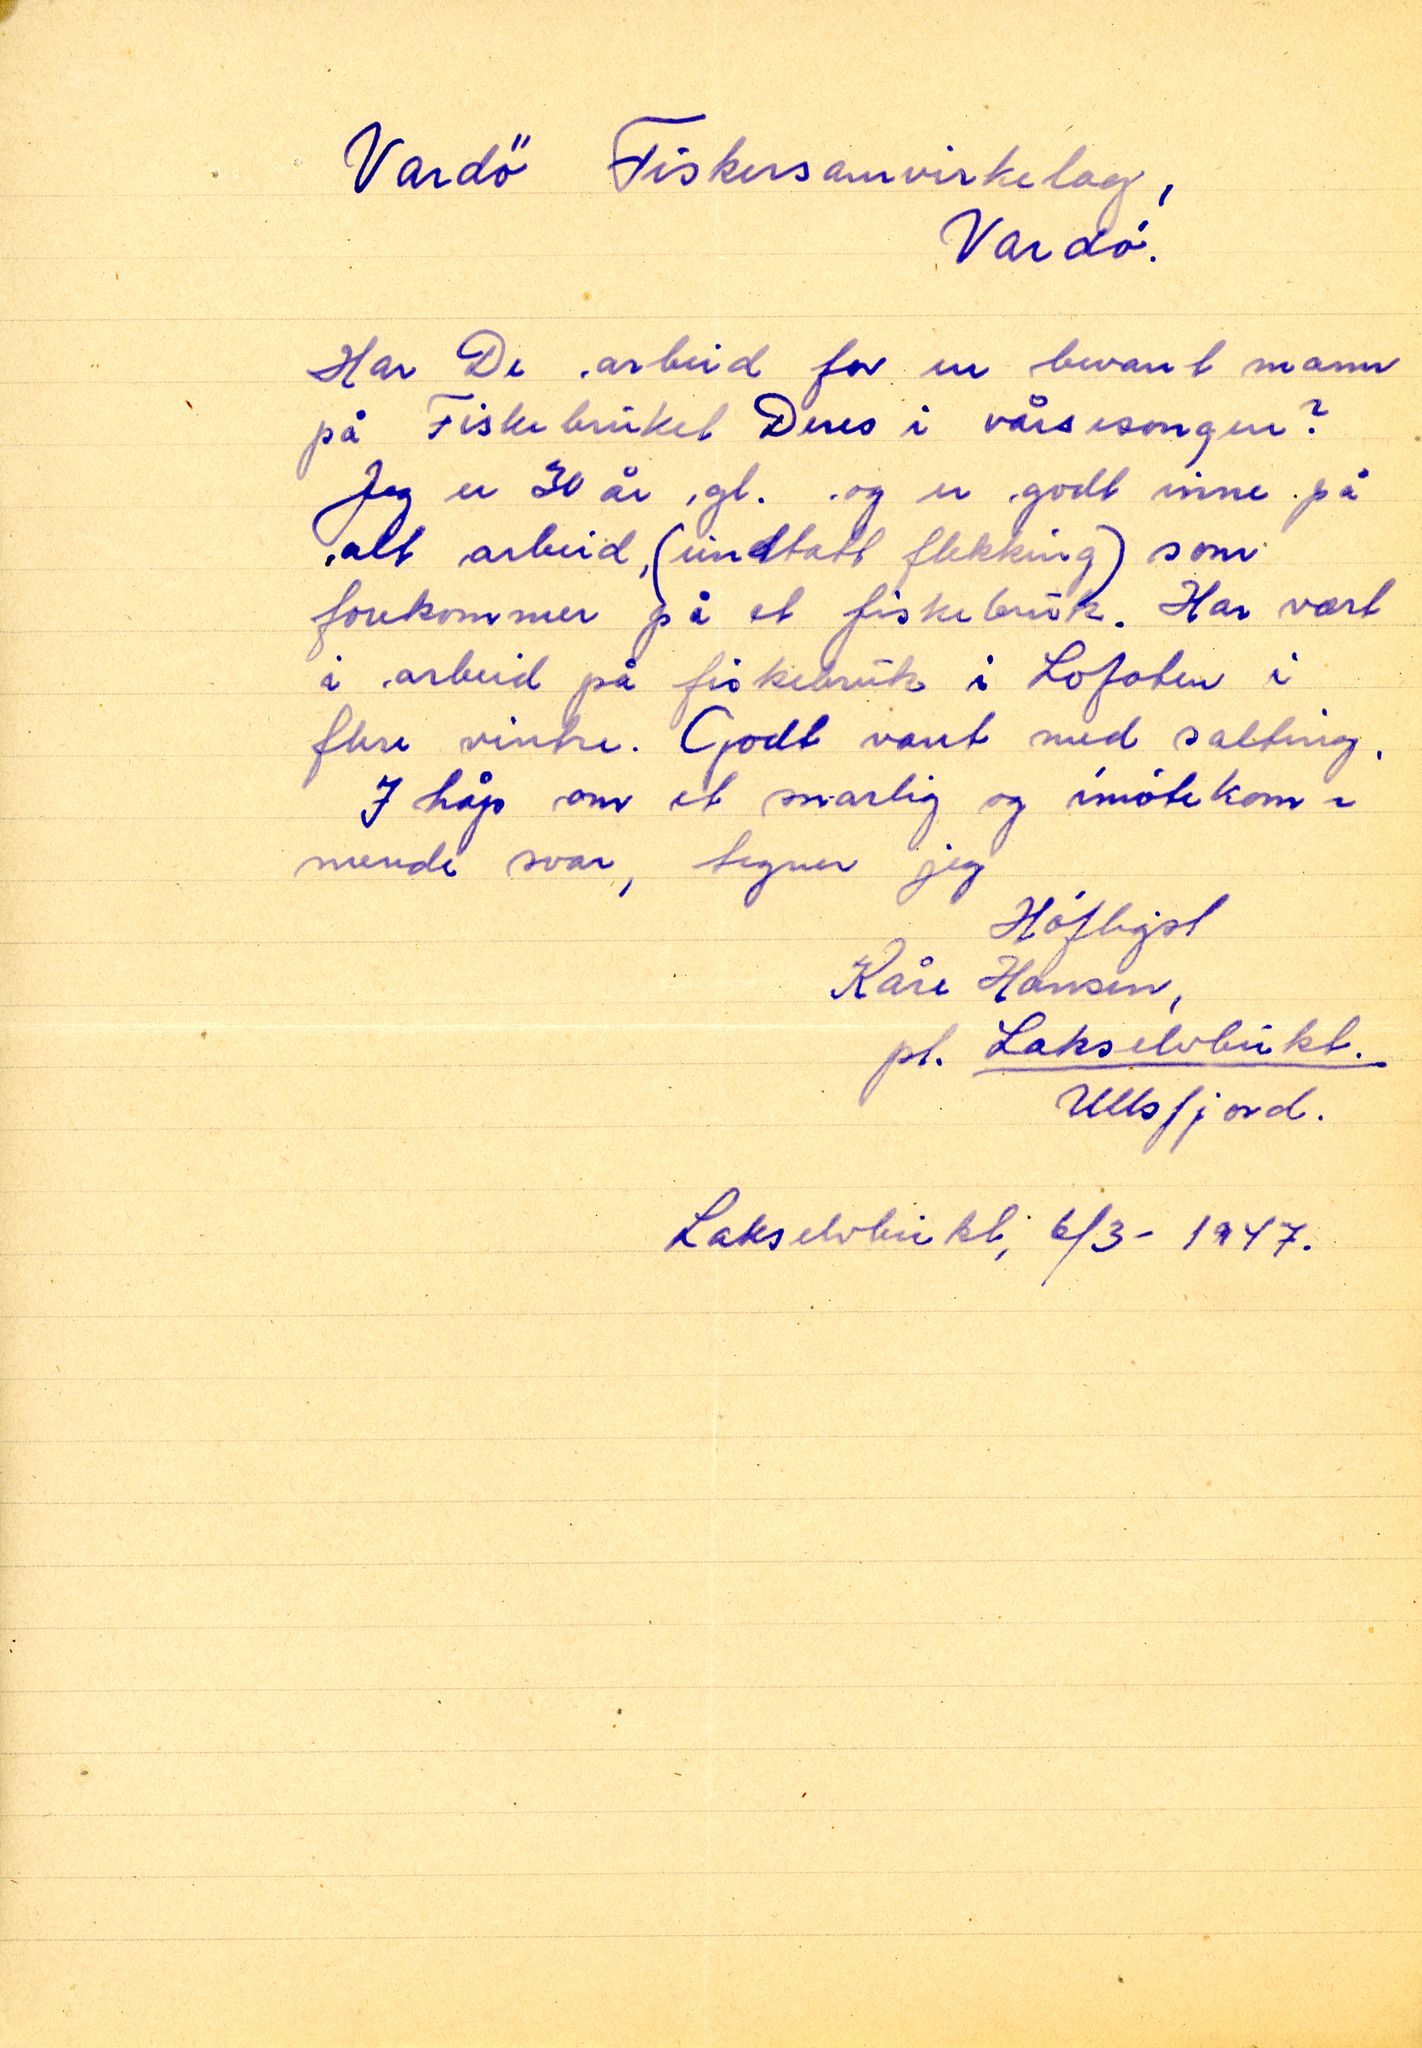 Vardö Fiskersamvirkelag,
Vardö.
Har De arbeid for en bevant mann
på Fiskebruket Deres i vårsesongen?
Jeg er 30 år gl. og er godt inne på
alt arbeid, (undtatt flekking) som
forekommer på et fiskebruk. Har vært
i arbeid på fiskebruk i Lofoten i
flere vintre. Godt vant med salting.
I håp om et snarlig og imötekom-
mende svar, tegner jeg
Höfligst
Kåre Hansen,
pt. Lakselvbukt.
Ullsfjord.
Lakselvbukt, 6/3- 1947.